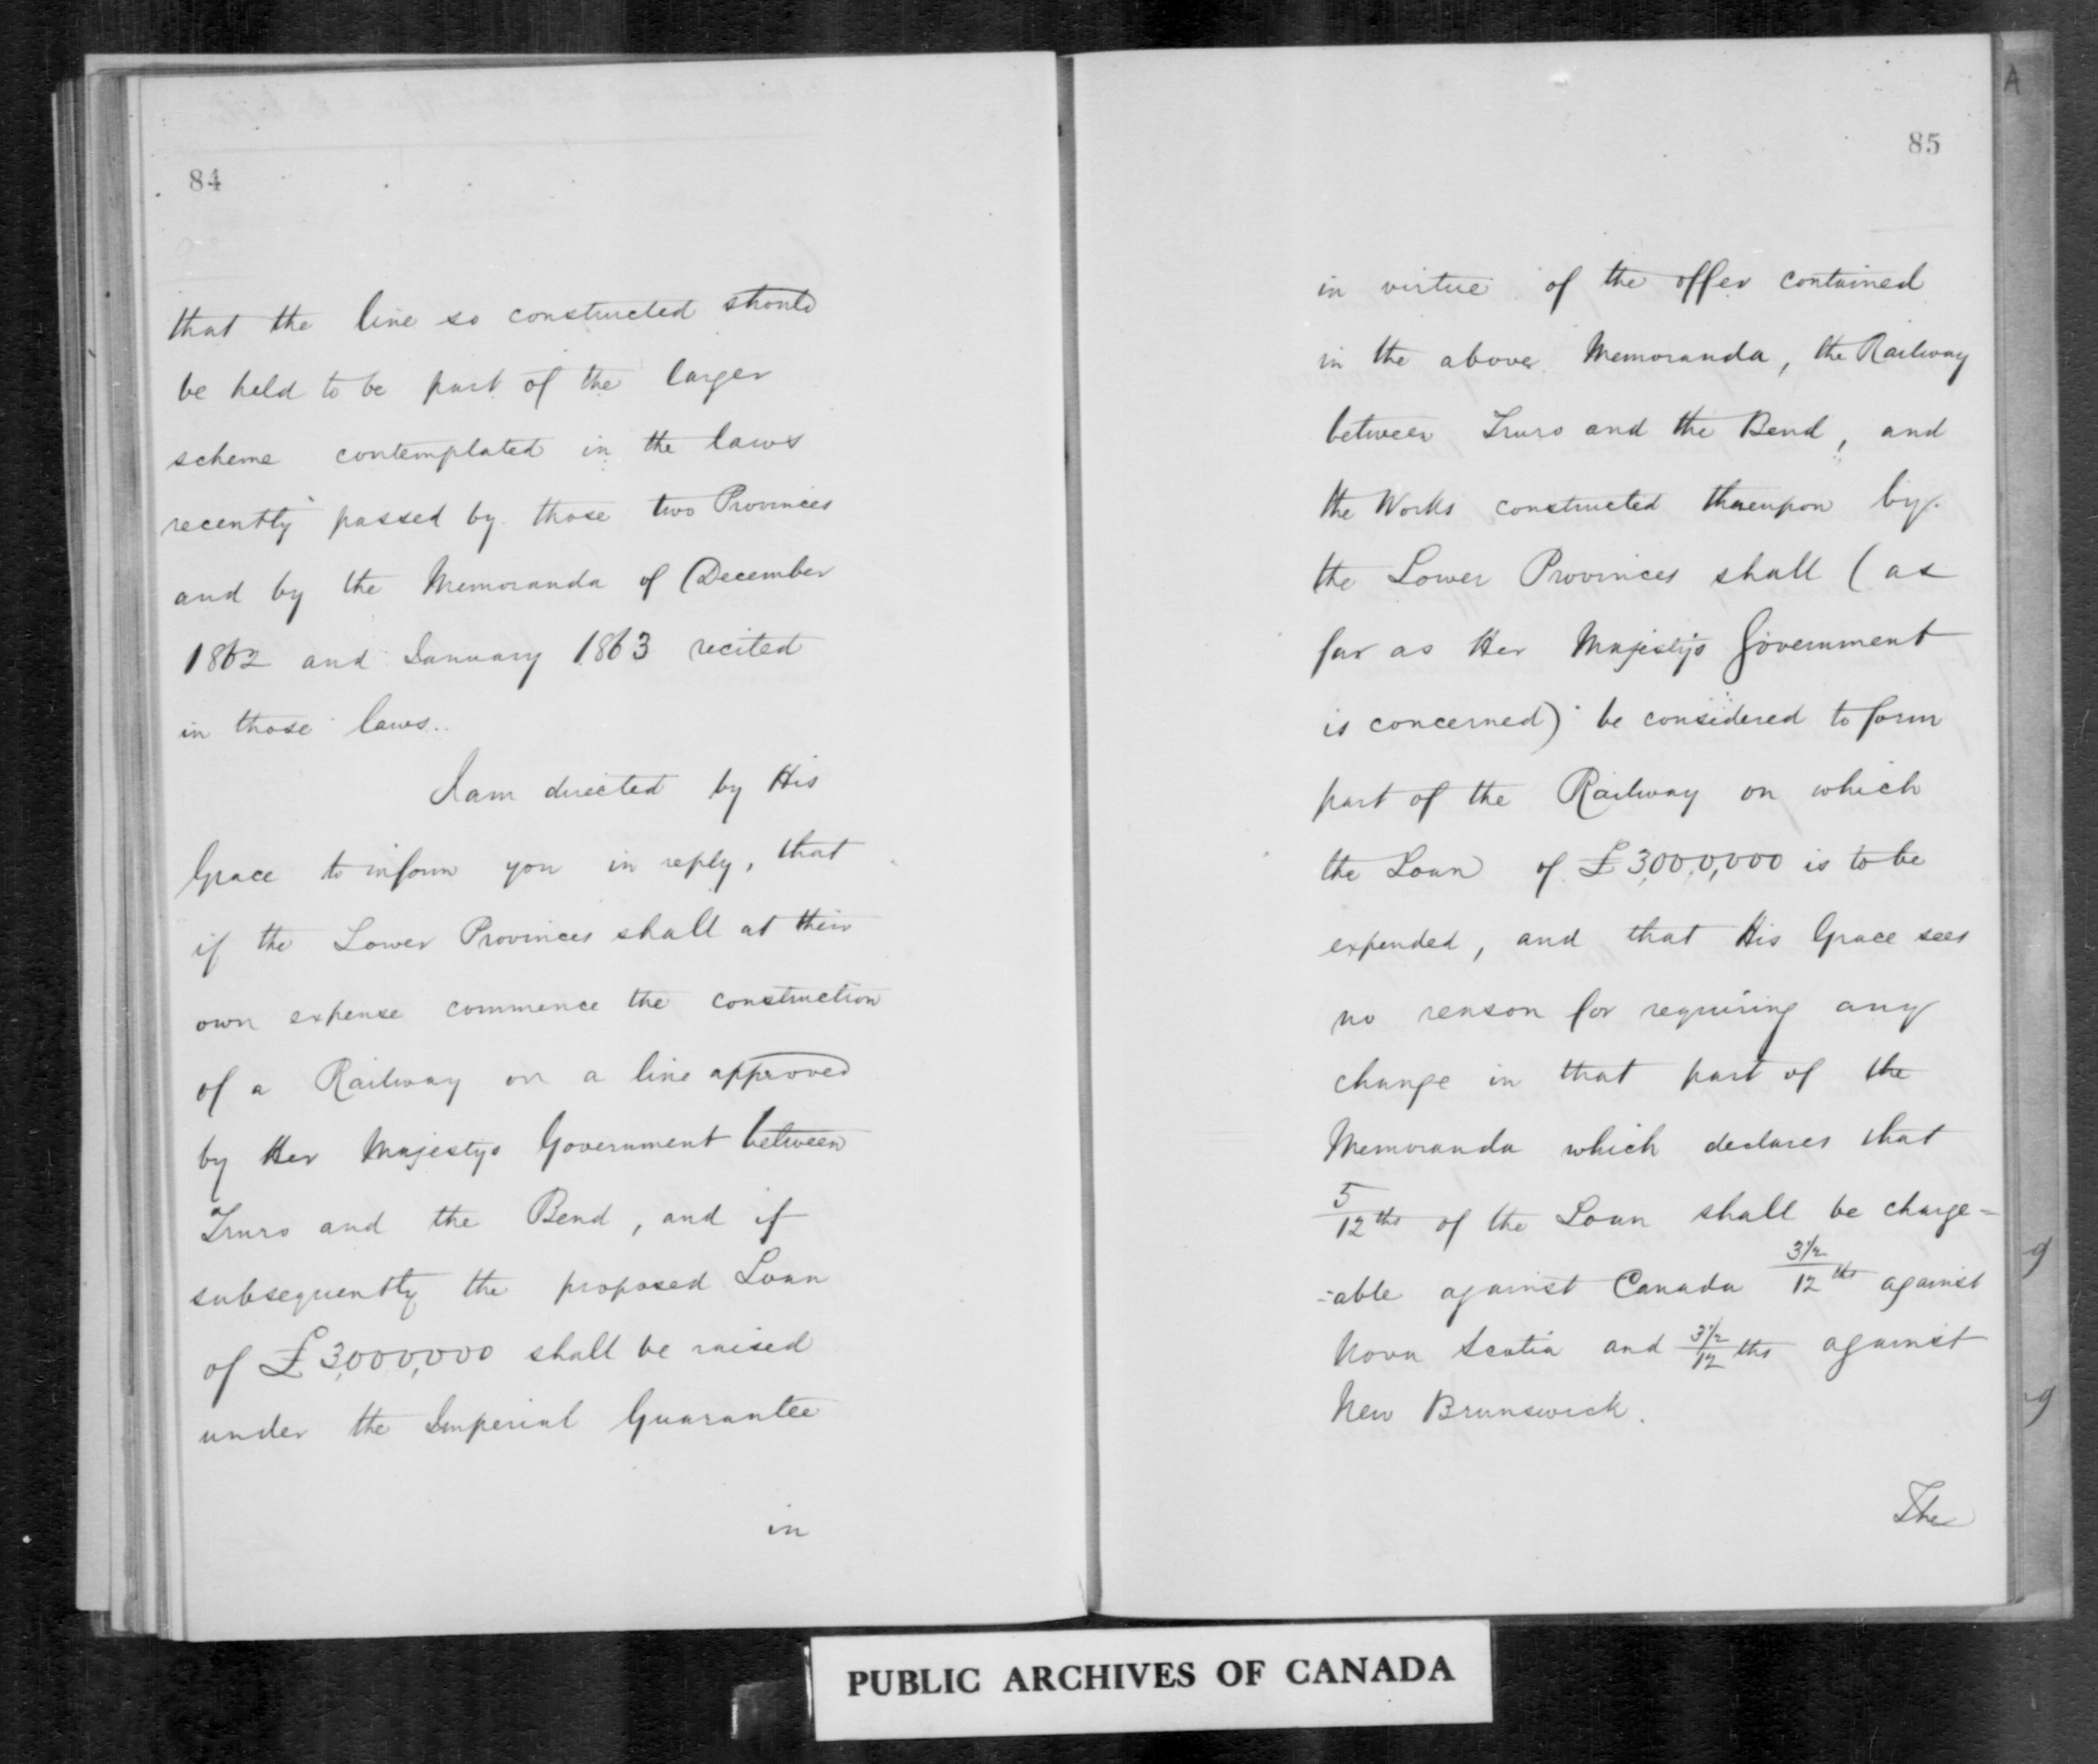 84
that the line so constructed should
be held to be part of the larger
scheme contemplated in the laws
recently passed by those two Provinces
and by the Memoranda of December
1862 and January 1863 recited
in those laws.
I am directed by His
Grace to inform you in reply, that
if the Lower Provinces shall at their
own expense commence the construction
of a Railway on a line approved
by Her Majestys Government between
Truro and the Bend, and if
subsequently the proposed Loan
of £3,000,000 shall be raised
under the Imperial Guarantee
in
85
in virtue of the offer contained
in the above Memoranda, the Railway
between Truro and the Bend, and
the Works constructed thereupon by
the Lower Provinces shall (as
far as Her Majestys Government
is concerned) be considered to form
part of the Railway on which
the Loan of £3,000,000 is to be
expended, and that His Grace sees
no reason for requiring any
change in that part of the
Memoranda which declares that
5/12ths of the Loan shall be charge=
=able against Canada 3½/12ths against
Nova Scotia and 3½/12ths against
New Brunswick.
The
A
g
g
PUBLIC ARCHIVES OF CANADA